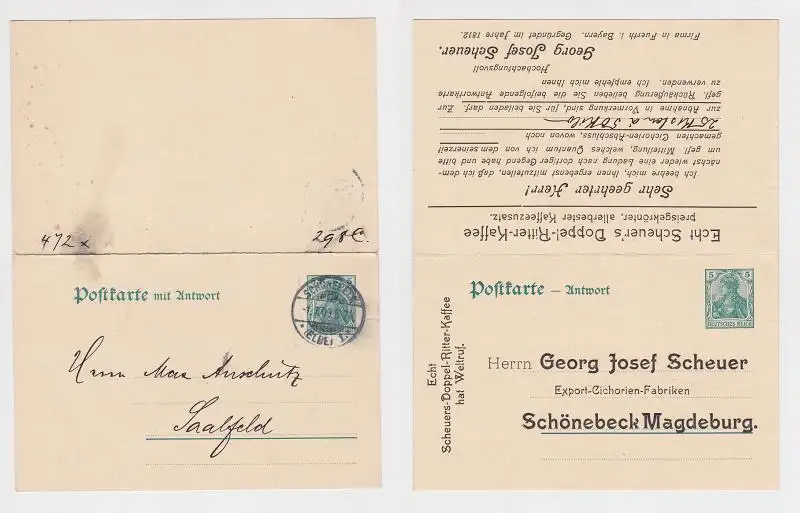 472x
298C.
Postkarte mit Antwort
SCHÖNEBECK
(ELBE) 1.
Herrn Max Anschütz
Saalfeld
Firma in Fuerth i. Bayern. Gegründet im Jahre 1812.
Echt Scheuer's Doppel-Ritter-Kaffee
preisgekrönter, allerbester Kaffeezusatz.
Sehr geehrter Herr!
Ich beehre mich, Ihnen ergebenst mitzuteilen, daß ich dem-
nächst wieder eine Ladung nach dortiger Gegend habe und bitte
um gefl. Mitteilung, welches Quantum ich von dem seinerzeit
gemachten Cichorien-Abschluss, wovon noch
25 Kisten à 50 Kilo
zur Abnahme in Vormerkung sind, für Sie beiladen darf. Zur
gefl. Rückäußerung belieben Sie die beifolgende Antwortkarte
zu verwenden. Ich empfehle mich Ihnen
Hochachtungsvoll
Georg Josef Scheuer.
Postkarte – Antwort
5
DEUTSCHES REICH
Echt
Scheuers-Doppel-Ritter-Kaffee
hat Weltruf.
Herrn Georg Josef Scheuer
Export-Cichorien-Fabriken
Schönebeck Magdeburg.